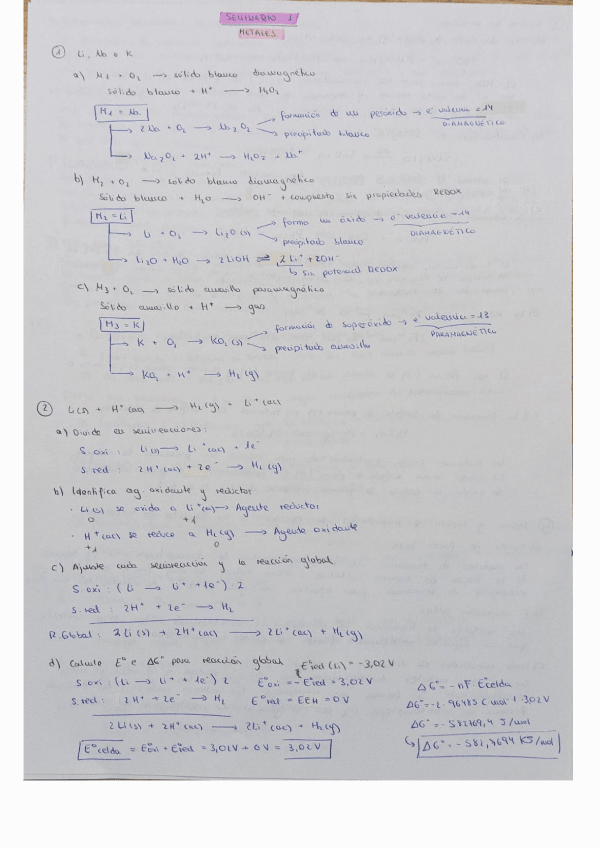 SEMINARIO 1
METALES
① Li, Na o K
a) M₁ + O₂ → sólido blanco diamagnético
Sólido blanco + H⁺ → H₂O₂
M₁ = Na
2Na + O₂ → Na₂O₂
formación de un peróxido → e⁻ valencia = 14
DIAMAGNÉTICO
precipitado blanco
Na₂O₂ + 2H⁺ → H₂O₂ + Na⁺
b) M₂ + O₂ → sólido blanco diamagnético
Sólido blanco + H₂O → OH⁻ + compuesto sin propiedades REDOX
M₂ = Li
Li + O₂ → Li₂O (s)
forma un óxido → e⁻ valencia = 14
DIAMAGNÉTICO
precipitado blanco
Li₂O + H₂O → 2LiOH ⇌ 2Li⁺ + 2OH⁻
↳ sin potencial REDOX
c) M₃ + O₂ → sólido amarillo paramagnético
Sólido amarillo + H⁺ → gas
M₃ = K
K + O₂ → KO₂ (s)
formación de superóxido → e⁻ valencia = 13
PARAMAGNÉTICO
precipitado amarillo
KO₂ + H⁺ → H₂ (g)
② Li(s) + H⁺ (ac) → H₂ (g) + Li⁺ (ac)
a) Divide en semirreacciones:
S. oxi: Li(s) → Li⁺ (ac) + 1e⁻
S. red: 2H⁺ (ac) + 2e⁻ → H₂ (g)
b) Identifica ag. oxidante y reductor
· Li(s) se oxida a Li⁺(ac) → Agente reductor
0 +1
· H⁺(ac) se reduce a H₂(g) → Agente oxidante
+1 0
c) Ajuste cada semirreacción y la reacción global
S. oxi: (Li → Li⁺ + 1e⁻) · 2
S. red: 2H⁺ + 2e⁻ → H₂
R. Global: 2Li(s) + 2H⁺(ac) → 2Li⁺(ac) + H₂(g)
d) Calculo E° e ΔG° para reacción global E°red (Li) = -3,02V
S. oxi: (Li → Li⁺ + 1e⁻) 2 E°oxi = -E°red = 3,02V
S. red: 2H⁺ + 2e⁻ → H₂ E°red = EEH = 0V
2Li(s) + 2H⁺(ac) → 2Li⁺(ac) + H₂(g)
E°celda = E°oxi + E°red = 3,02V + 0V = 3,02V
ΔG° = -nF · E°celda
ΔG° = -2 · 96485 C mol⁻¹ · 3,02V
ΔG° = -582769,4 J/mol
↳ ΔG° = -582,7694 KJ/mol